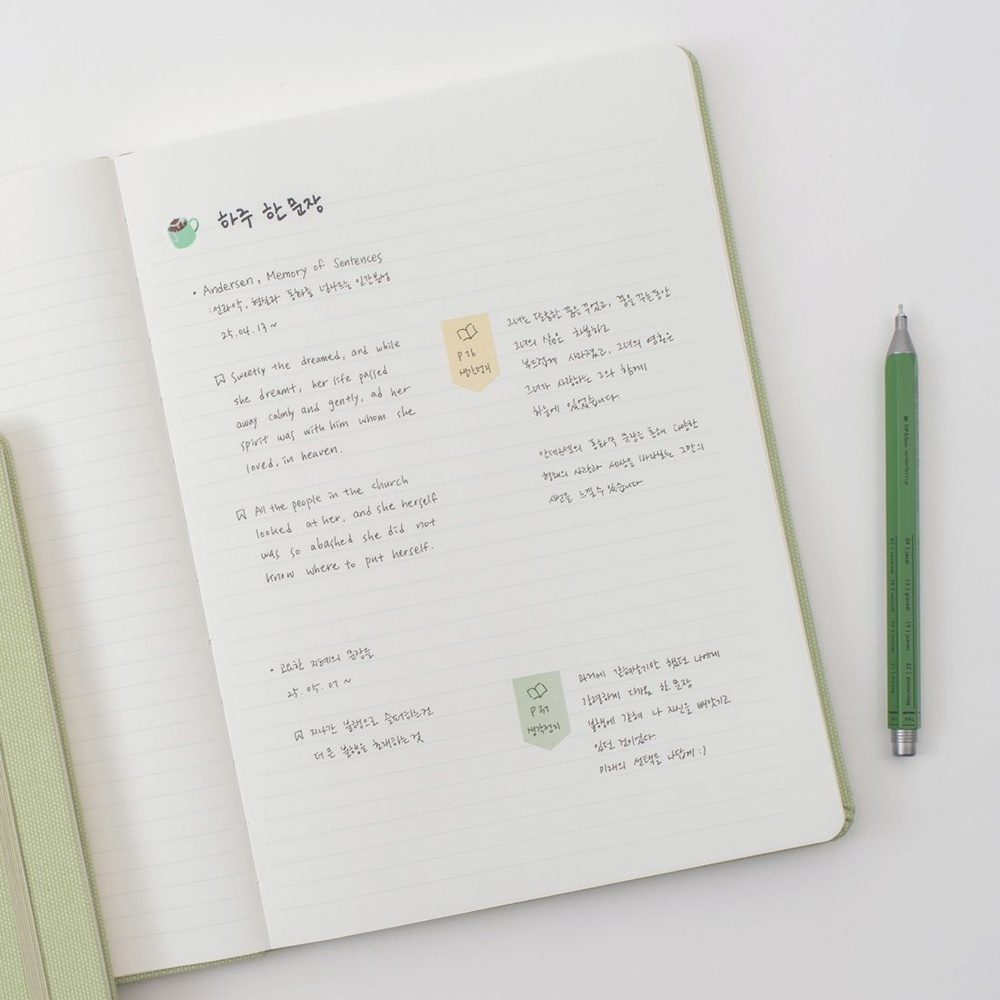 하루 한 문장
• Andersen, Memory of Sentences
: 선과악, 현실과 동화를 넘나드는 인간본성
25.04.13 ~
Sweetly the dreamed, and while
she dreamt, her life passed
away calmly and gently, ad her
spirit was with him whom she
loved, in heaven.
All the people in the church
looked at her, and she herself
was so abashed she did not
know where to put herself.
P 76
생각정리
그녀는 달콤한 꿈을 꾸었고, 꿈을 꾸는동안
그녀의 삶은 차분하고
부드럽게 사라졌고, 그녀의 영혼은
그녀가 사랑하는 그와 함께
하늘에 있었습니다.
안데르센의 동화 속 문장을 통해 다양한
형태의 사랑과 세상을 바라보는 그만의
시선을 느낄 수 있습니다
• 고요한 지혜의 문장들
25.05.01 ~
지나간 불행으로 슬퍼하는건
더 큰 불행을 초래하는 것
생각정리
과거에 갇혀살기만 했던 나에게
강렬하게 다가온 한 문장
불행에 갇혀 나 자신을 빼앗기고
있던 것이었다.
미래의 선택을 나답게 :)